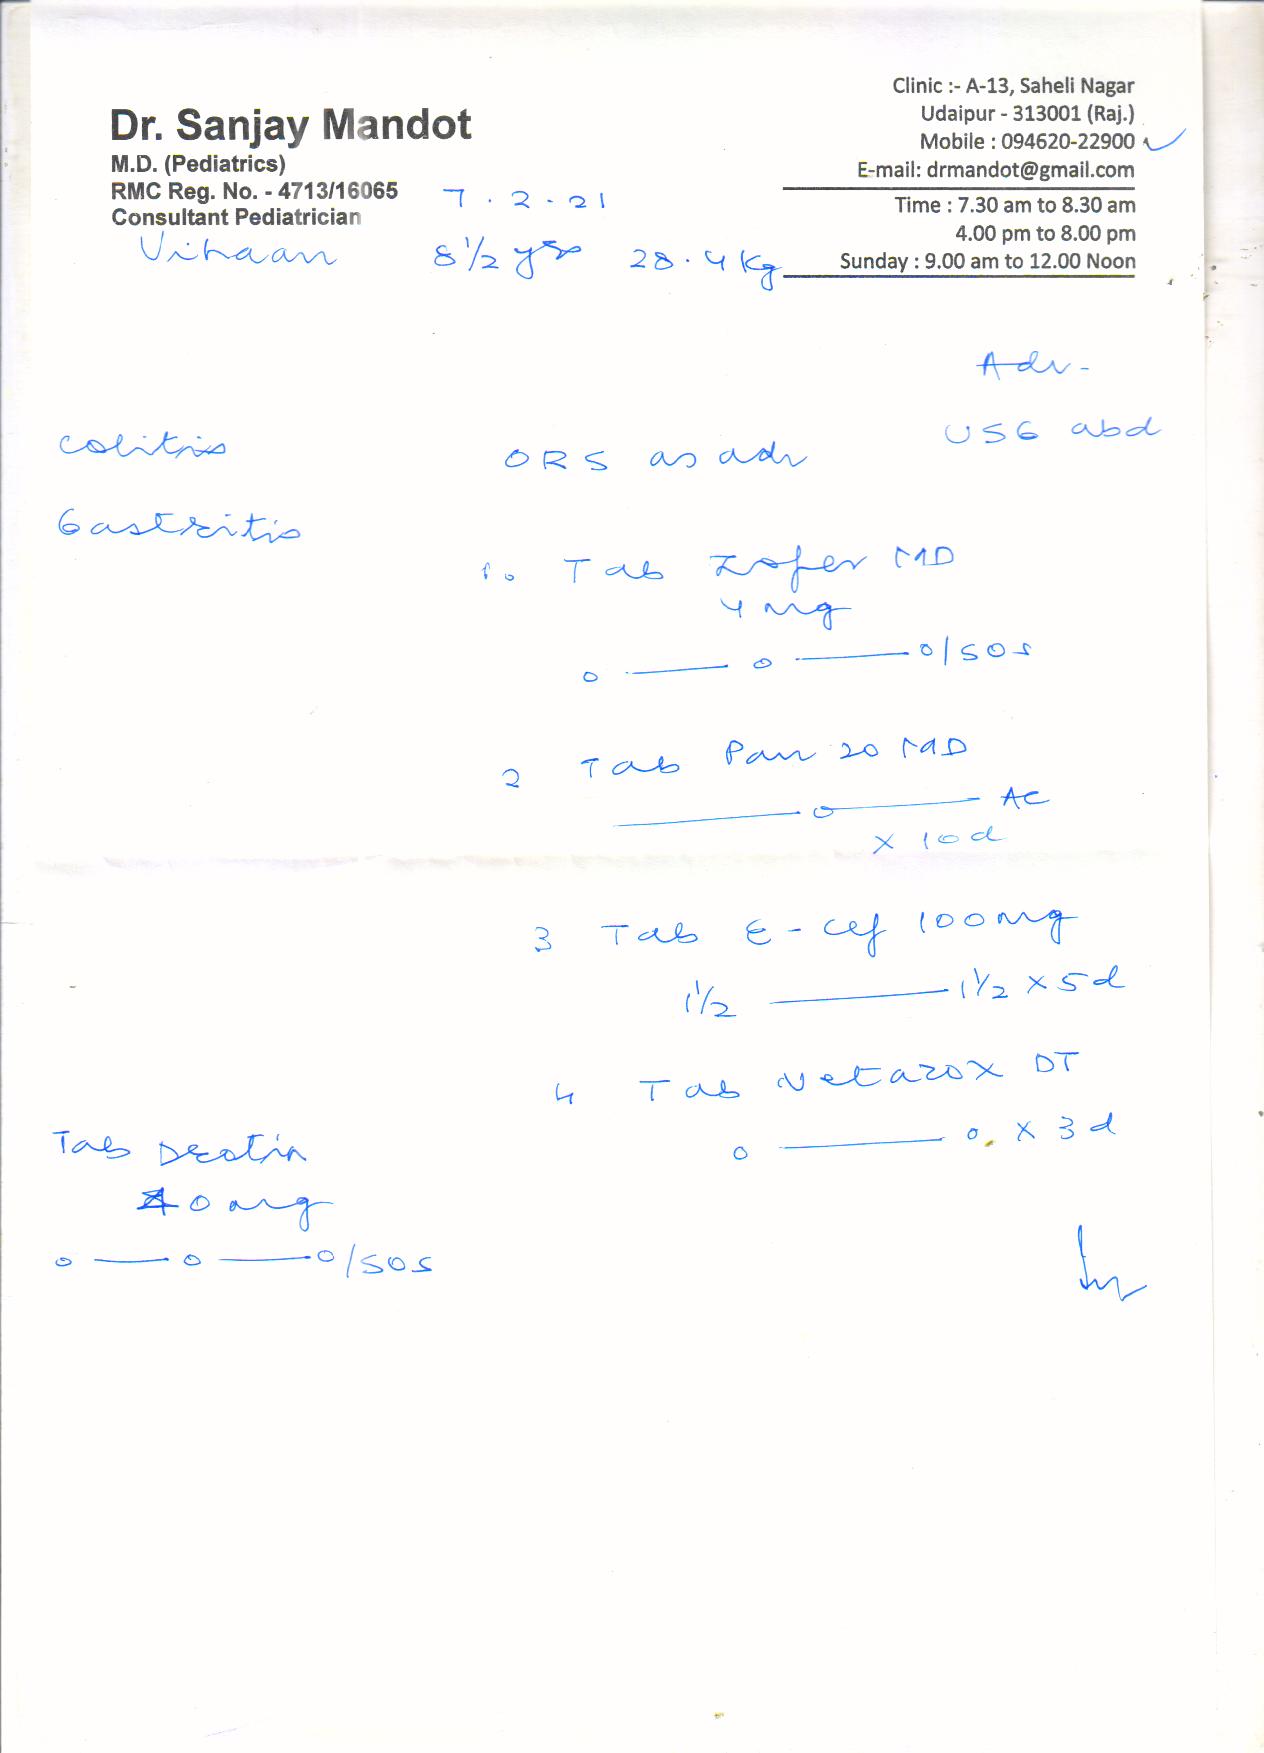 Dr. Sanjay Mandot
M.D. (Pediatrics)
RMC Reg. No. - 4713/16065
Consultant Pediatrician
Clinic :- A-13, Saheli Nagar
Udaipur - 313001 (Raj.)
Mobile : 094620-22900
E-mail: drmandot@gmail.com
Time : 7.30 am to 8.30 am
4.00 pm to 8.00 pm
Sunday : 9.00 am to 12.00 Noon
7.2.21
Vihaan 8 1/2 yrs 28.4 kg
Adv-
USG abd
Colitis
Gastritis
ORS as adv
1. Tab Zofer MD
4 mg
o — o — o/SOS
2 Tab Pan 20 MD
— o — AC
x 10 d
3 Tab E-cef 100mg
1 1/2 — 1 1/2 x 5 d
4 Tab Netazox DT
o — o x 3 d
Tab Drotin
40 mg
o — o — o/SOS